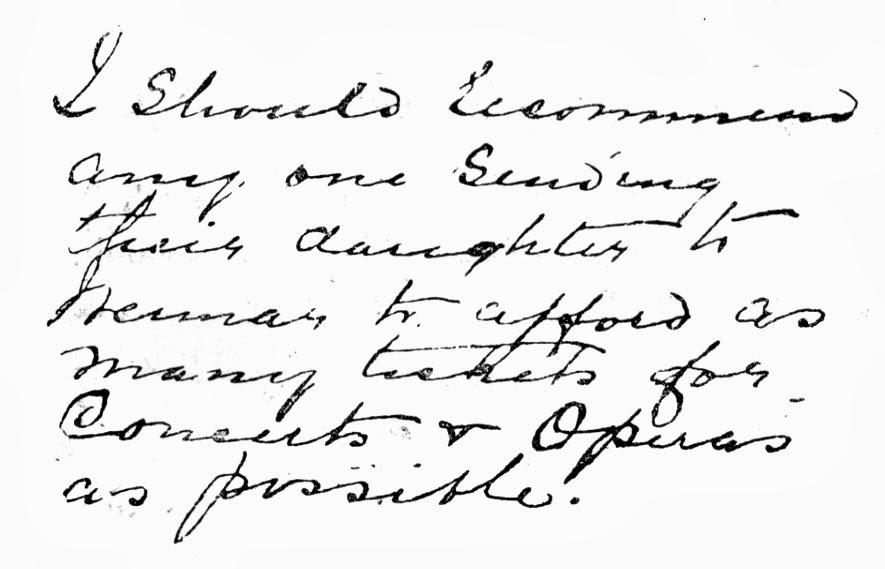 I Should recommend
any one Sending
their daughter to
Weimar to afford as
many tickets for
Concerts & Operas
as possible.